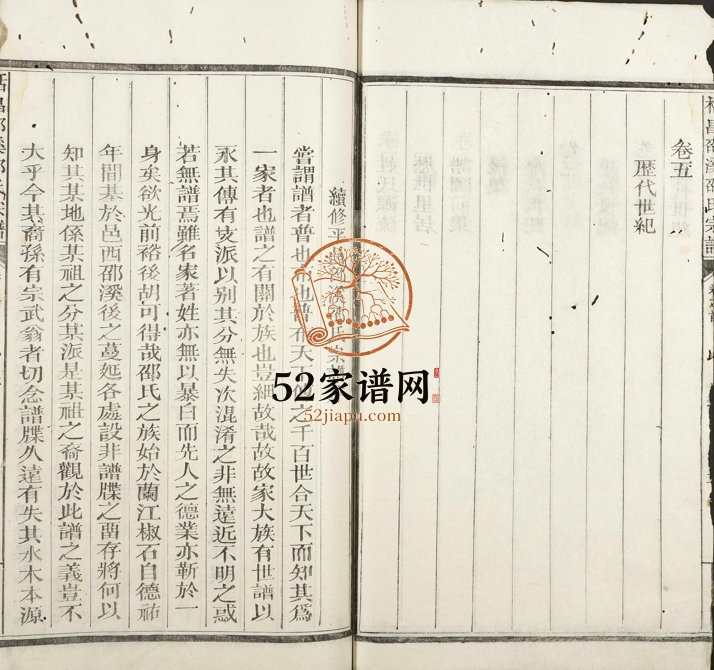 卷五
歷代世紀
邵溪邵氏宗譜
續修平昌邵溪邵氏宗譜
嘗謂譜者普也布也普布天下之千百世合天下而知其為
一家者也譜之有關於族也豈細故哉故故家大族有世譜以
永其傳有支派以別其分無失次混淆之非無遠近不明之惑
若無譜焉雖名家著姓亦無以暴白而先人之德業亦靳於一
身矣欲光前裕後胡可得哉邵氏之族始於蘭江椒石自德祐
年間基於邑西邵溪後之蔓延各處設非譜牒之畱存將何以
知其某地係某祖之分某派是某祖之裔觀於此譜之義豈不
大乎今其裔孫有宗武翁者切念譜牒久遠有失其水木本源
52家谱网
52jiapu.com